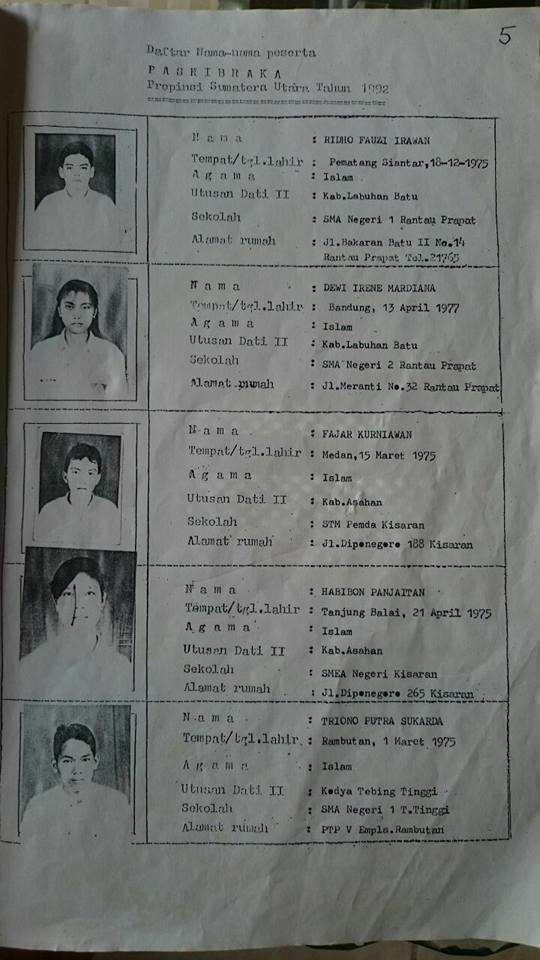 5
Daftar Nama-nama peserta
P A S K I B R A K A
Propinsi Sumatera Utara Tahun 1992
N a m a : RIDHO FAUZI IRAWAN
Tempat/tgl.lahir : Pematang Siantar,18-12-1975
A g a m a : Islam
Utusan Dati II : Kab.Labuhan Batu
Sekolah : SMA Negeri 1 Rantau Prapat
Alamat rumah : Jl.Bakaran Batu II No.14
Rantau Prapat Tel.21765
N a m a : DEWI IRENE MARDIANA
Tempat/tgl.lahir : Bandung, 13 April 1977
A g a m a : Islam
Utusan Dati II : Kab.Labuhan Batu
Sekolah : SMA Negeri 2 Rantau Prapat
Alamat rumah : Jl.Meranti No.32 Rantau Prapat
N a m a : FAJAR KURNIAWAN
Tempat/tgl.lahir : Medan,15 Maret 1975
A g a m a : Islam
Utusan Dati II : Kab.Asahan
Sekolah : STM Pemda Kisaran
Alamat rumah : Jl.Diponegoro 188 Kisaran
N a m a : HABIBON PANJAITAN
Tempat/tgl.lahir : Tanjung Balai, 21 April 1975
A g a m a : Islam
Utusan Dati II : Kab.Asahan
Sekolah : SMEA Negeri Kisaran
Alamat rumah : Jl.Diponegoro 265 Kisaran
N a m a : TRIONO PUTRA SUKARDA
Tempat/tgl.lahir : Rambutan, 1 Maret 1975
A g a m a : Islam
Utusan Dati II : Kodya Tebing Tinggi
Sekolah : SMA Negeri 1 T.Tinggi
Alamat rumah : PTP V Empls.Rambutan